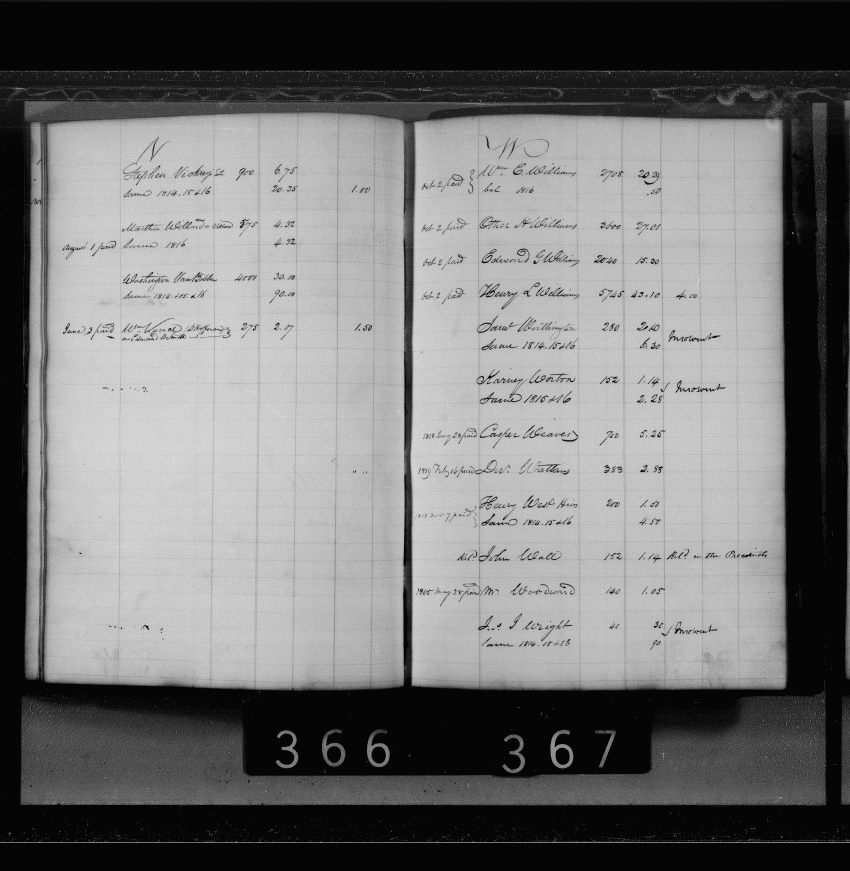 Stephen Vickery 900 6.75
Same 1814.15&16 20.25 1.00
Martha Willard 575 4.32
August 1 paid Same 1816 4.32
Washington VanBibber 4000 30.00
Same 1814.15&16 90.00
June 3 paid Wm Vance 275 2.07 1.50
W
Oct 2 paid Wm E. Williams 2705 20.29
bal 1816 .50
Oct 2 paid Otho H Williams 3600 27.01
Oct 2 paid Edward G Williams 2040 15.30
Oct 2 paid Henry L Williams 5745 43.10 4.00
Saml Worthington 280 2.10
Same 1814.15&16 6.30 Insolvent
Worton 152 1.14
Same 1815&16 2.28 Insolvent
paid Casper Weaver 700 5.25
1819 Feby 16 paid Watkins 383 2.88
paid Henry West Heirs 200 1.50
Same 1814.15&16 4.50
John Wall 152 1.14 in other Precincts
May 28 paid Woodward 140 1.05
Wright 40 30
Same 1814.15&16 90 Insolvent
366 367